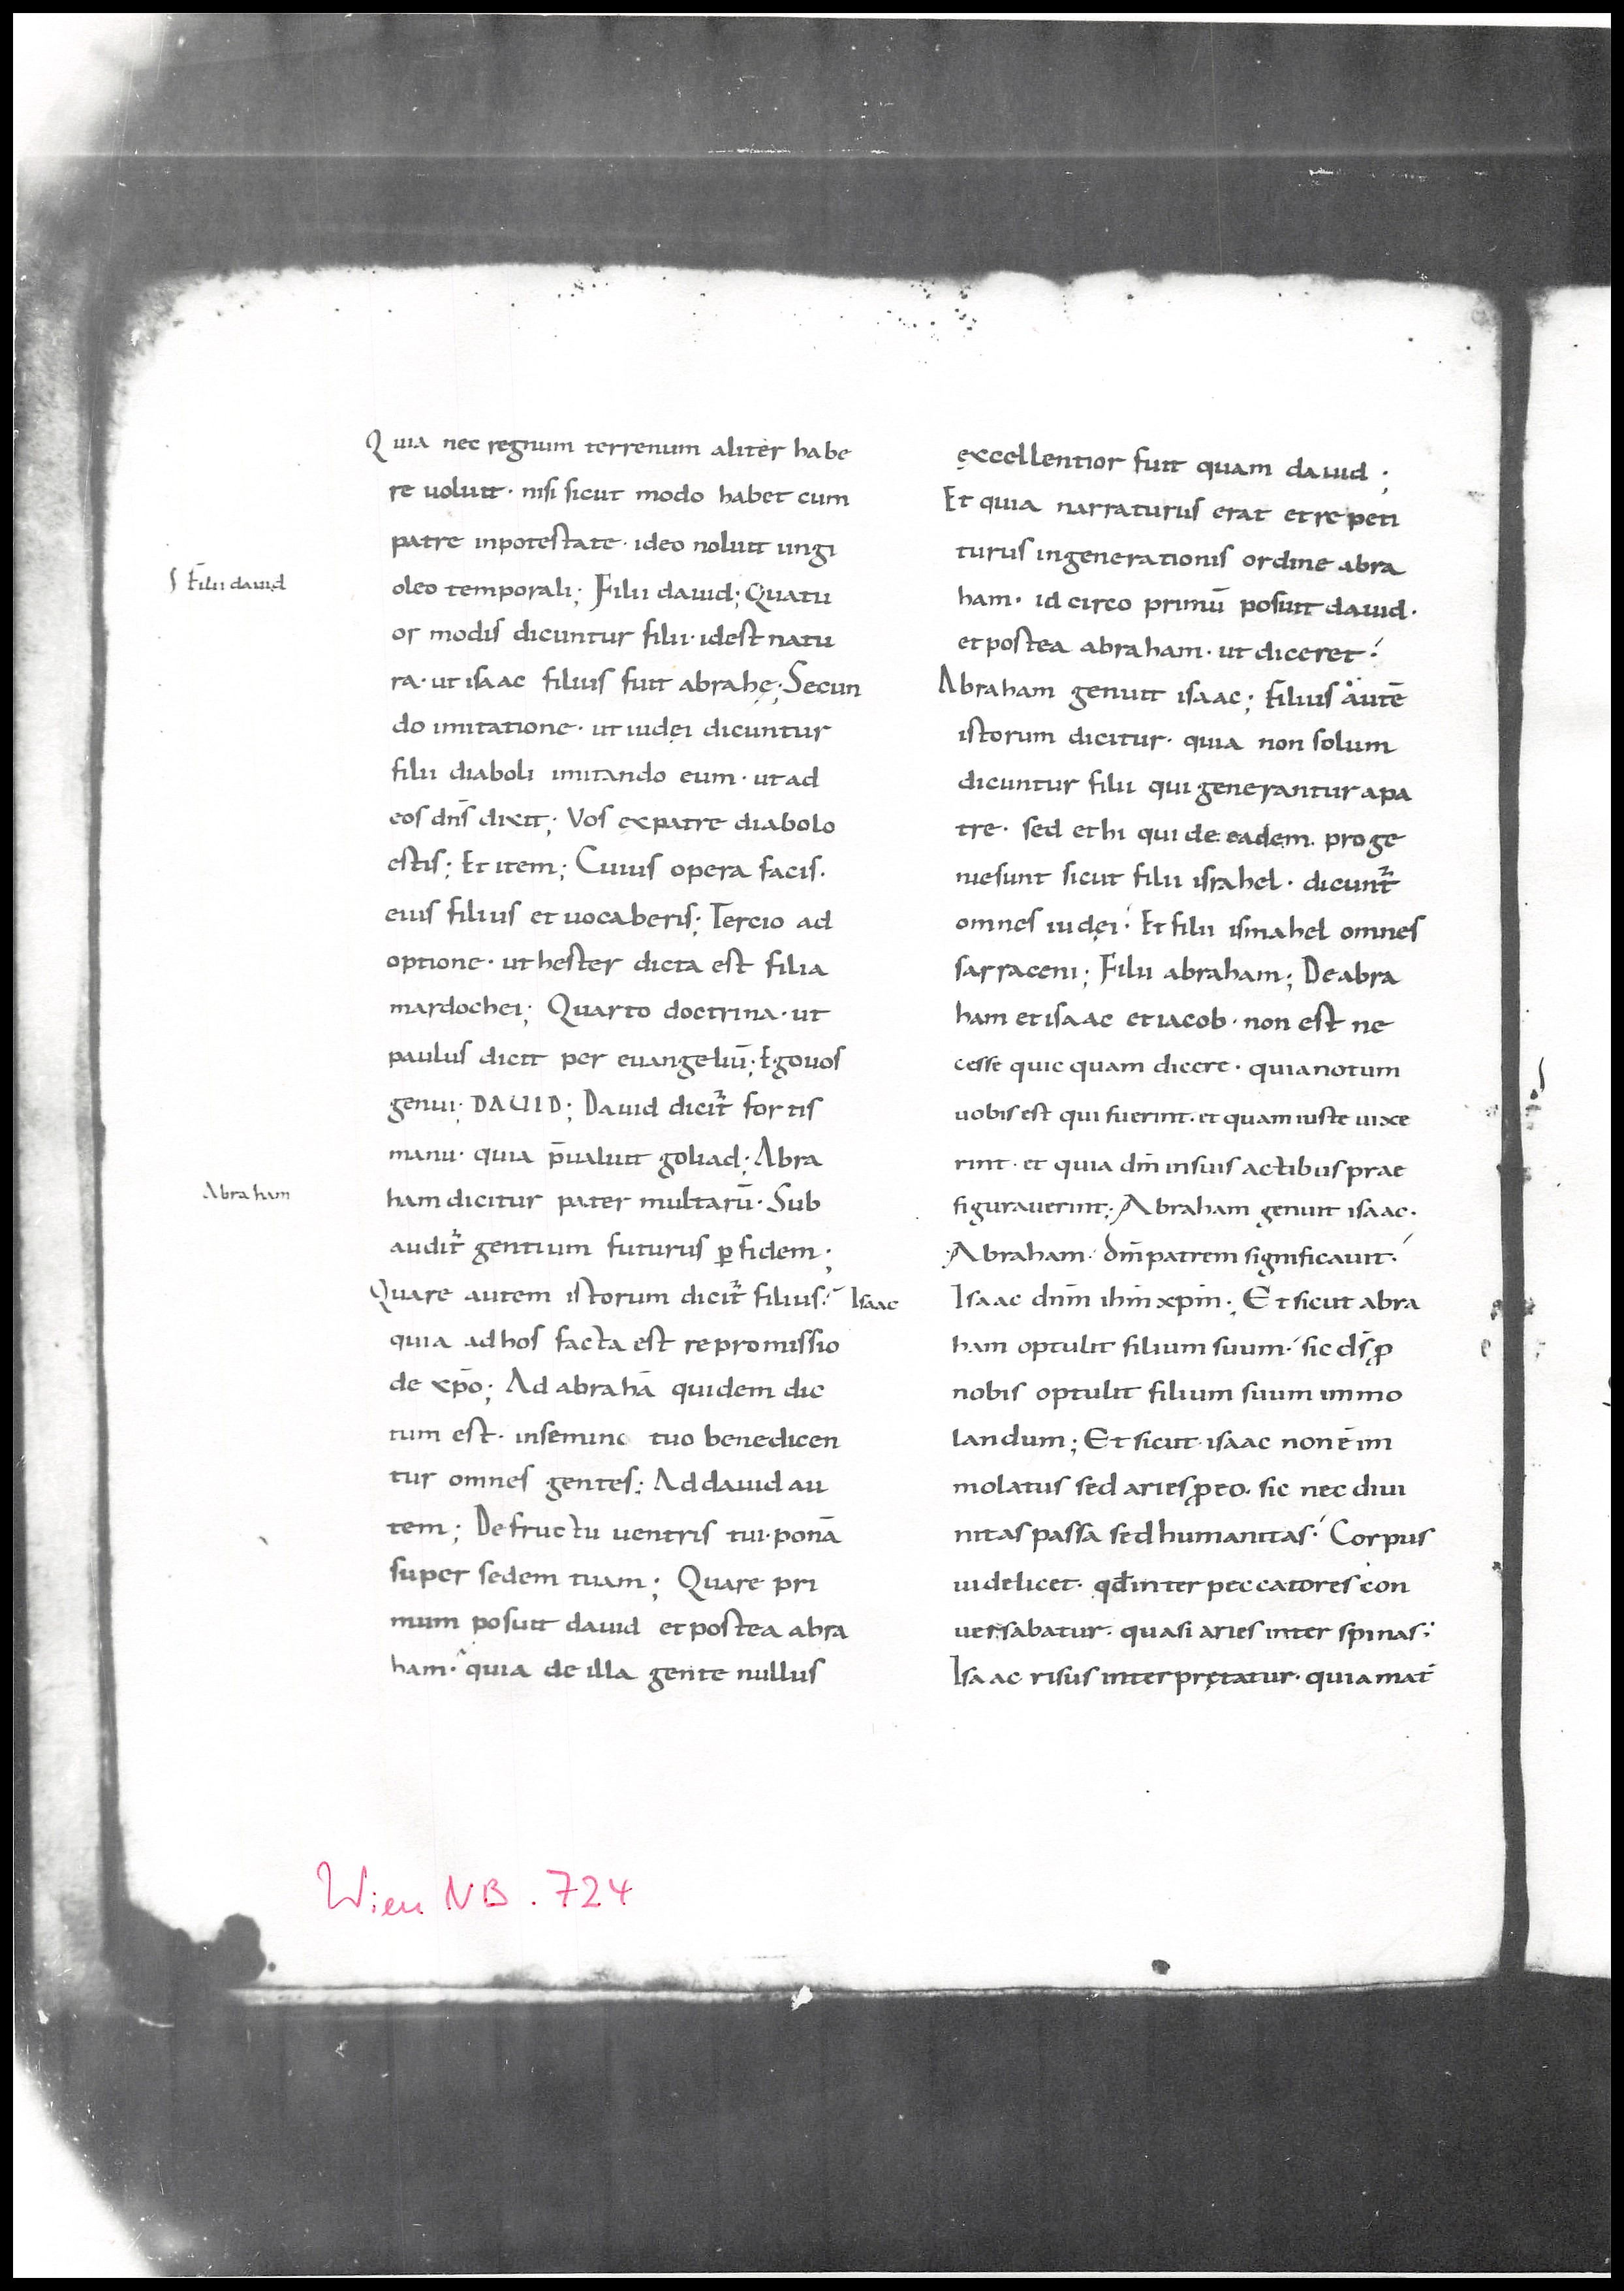 Quia nec regnum terrenum aliter habe
re uoluit · nisi sicut modo habet cum
patre inpotestate · ideo noluit ungi
ſ filii dauid
oleo temporali; Filii dauid; Quatu
or modis dicuntur filii · idest natu
ra · ut isaac filius fuit abrahę; Secun
do imitatione · ut iudei dicuntur
filii diaboli imitando eum · ut ad
eos dn̄s dixit; Vos expatre diabolo
estis; Et item; Cuius opera facis ·
eius filius et uocaberis; Tercio ad
optione · ut hester dicta est filia
mardochei; Quarto doctrina · ut
paulus dicit per euangeliū; Egouos
genui · DAUID; Dauid dicit̃ fortis
manu · quia p̄ualuit goliad; Abra
Abraham
ham dicitur pater multarū · Sub
audit̃ gentium futurus ꝑ fidem;
Quare autem istorum dicit̃ filius?
quia adhos facta est repromissio
de xp̄o; Ad abrahā quidem dic
tum est · insemine tuo benedicen
tur omnes gentes; Addauid au
tem; Defructu uentris tui · ponā
super sedem tuam; Quare pri
mum posuit dauid et postea abra
ham · quia de illa gente nullus
excellentior fuit quam dauid;
Et quia narraturus erat et repeti
turus ingenerationis ordine abra
ham · id circo primū posuit dauid ·
et postea abraham · ut diceret ·
Abraham genuit isaac; filius autē
istorum dicitur · quia non solum
dicuntur filii qui generantur apa
tre · sed et hi qui de eadem proge
niesunt sicut filii israhel · dicunt̃
omnes iudęi · Et filii ismahel omnes
sarraceni; Filii abraham; Deabra
ham etisaac etiacob · non est ne
cesse quic quam dicere · quianotum
uobis est qui fuerint · et quam iuste uixe
rint · et quia dn̄m insuis actibus prae
figurauerint; Abraham genuit isaac ·
Abraham · dm̄patrem significauit ·
Isaac
Isaac dnm̄ ihm̄ xpm̄; Et sicut abra
ham optulit filium suum · sic ds̄ ꝓ
nobis optulit filium suum immo
landum; Et sicut isaac non ē im
molatus sed aries ꝓ eo · sic nec diui
nitas passa sed humanitas · Corpus
uidelicet · qđ inter peccatores con
uersabatur · quasi aries inter spinas;
Isaac risus interpretatur · quia mat̄
Wien NB. 724